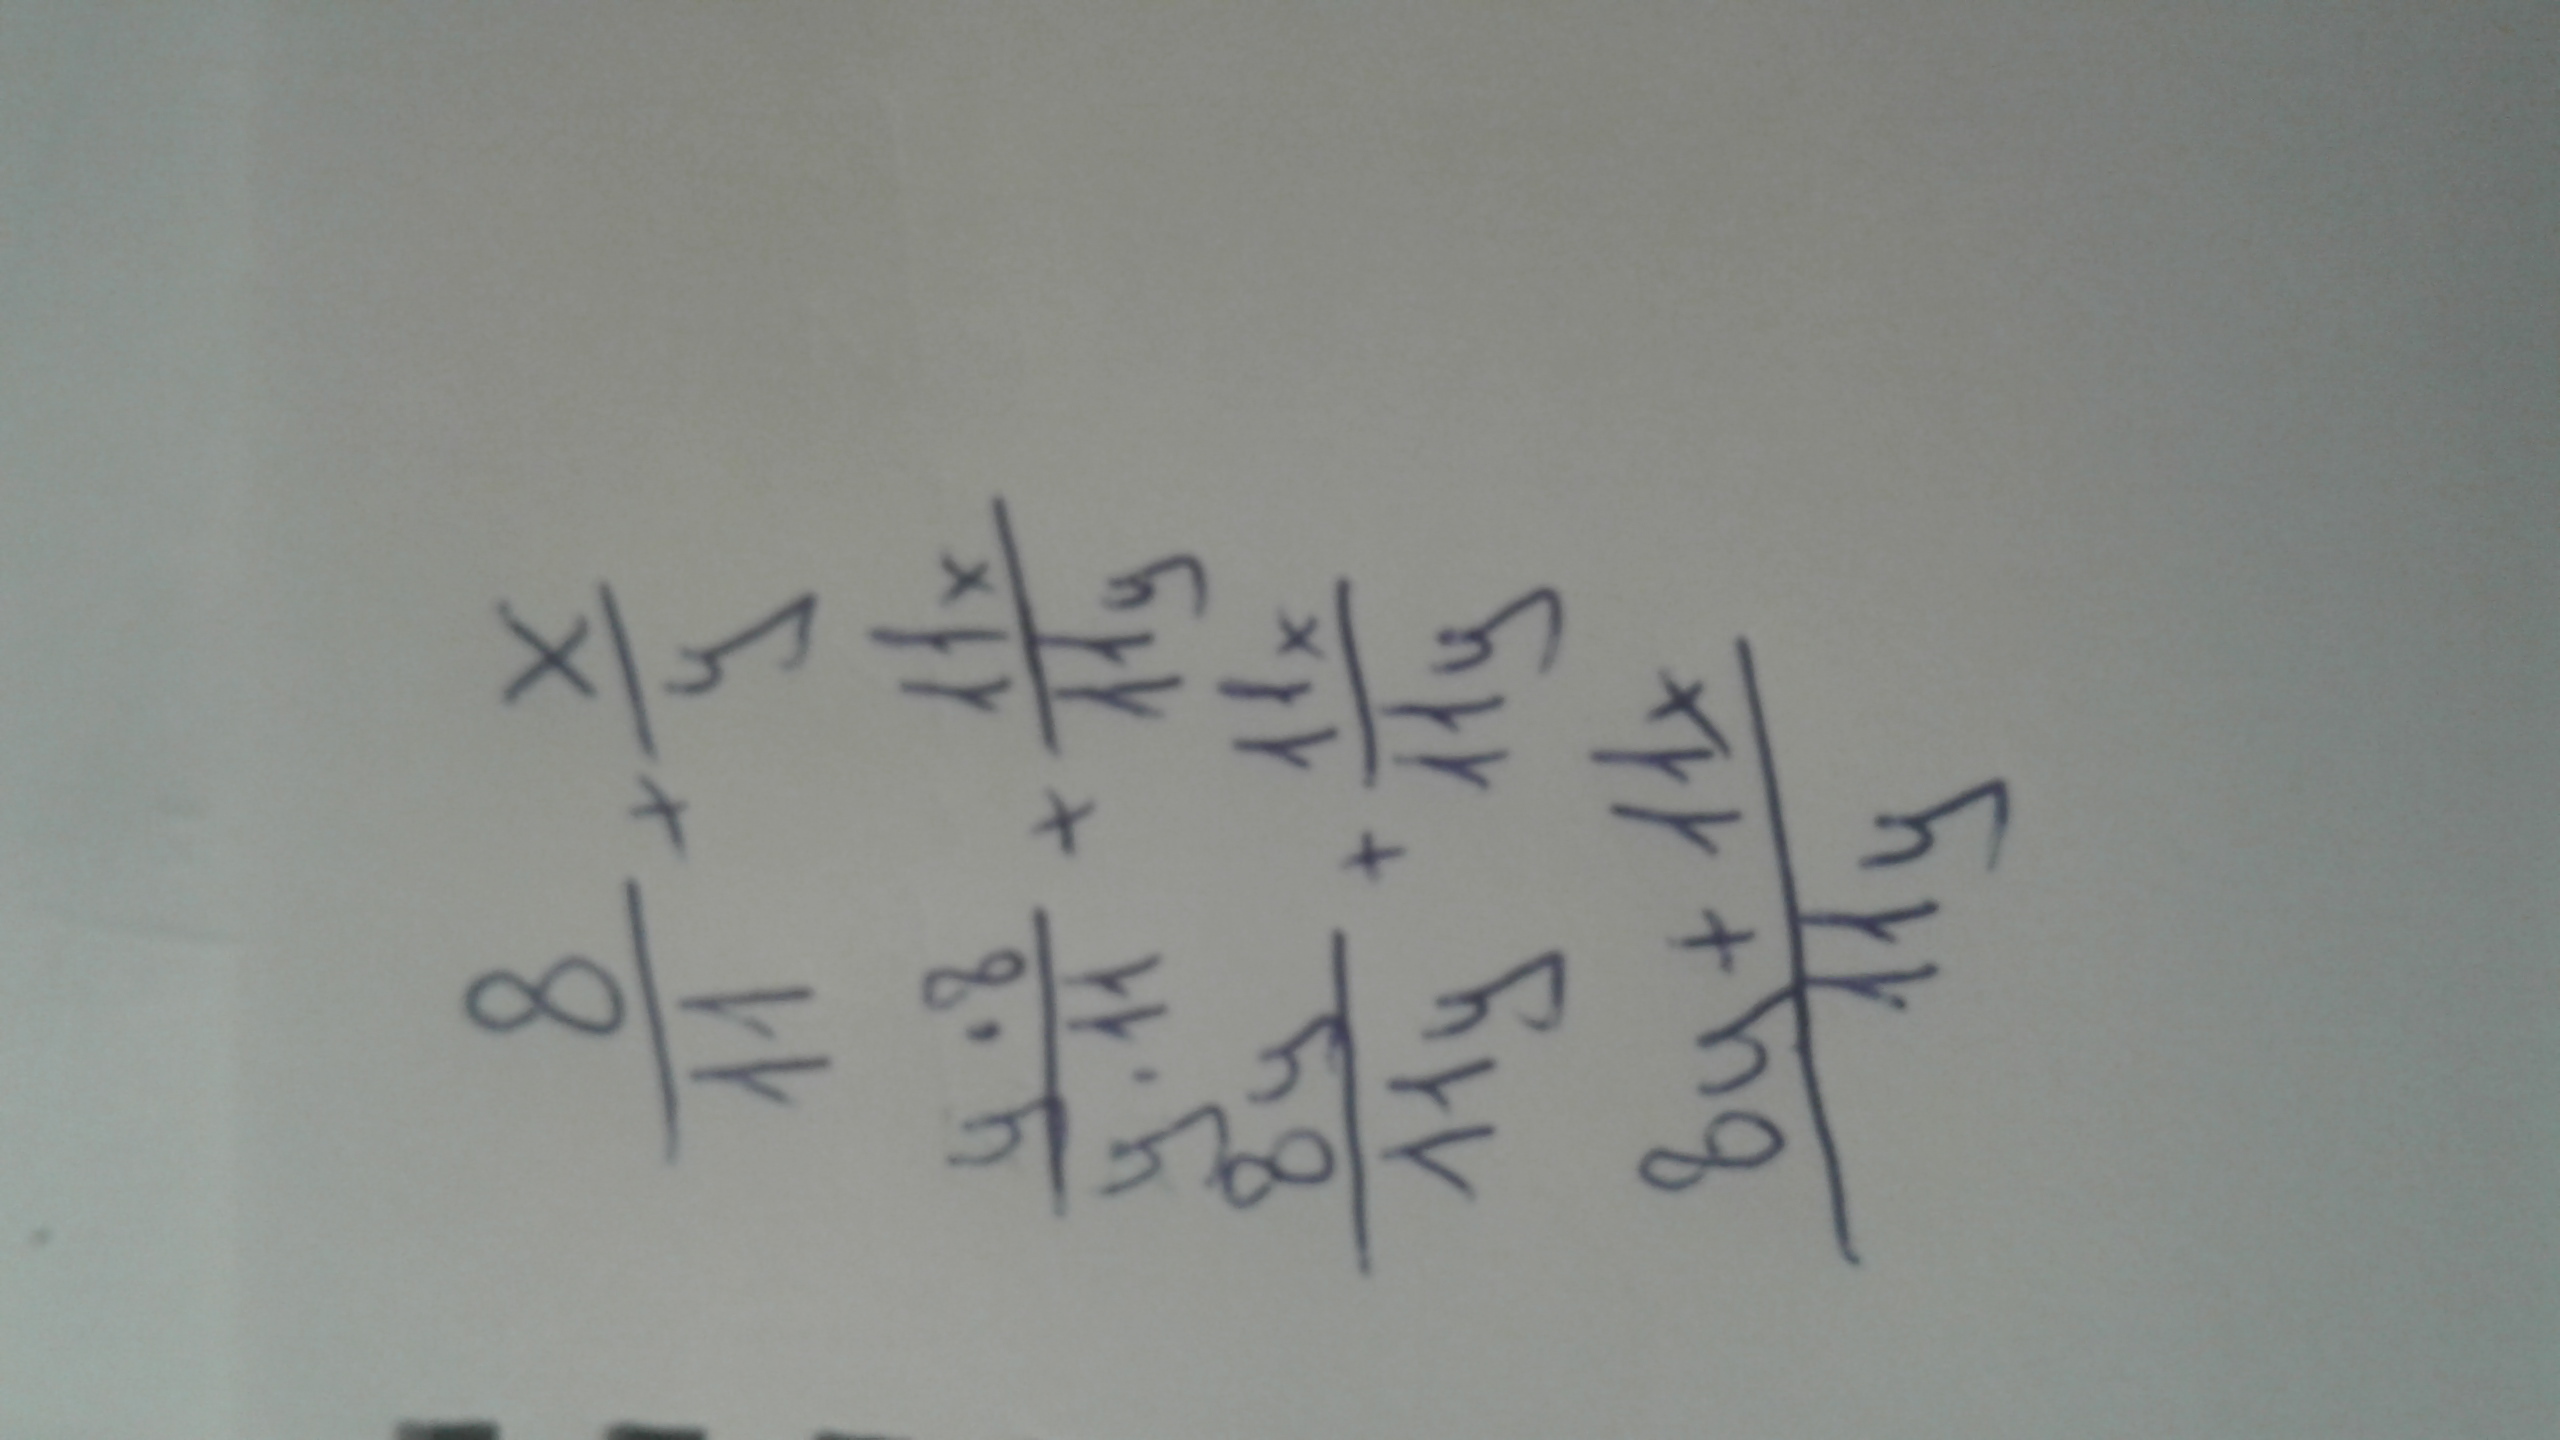 8/11 + x/y
y·8/y·11 + 11x/11y
8y/11y + 11x/11y
8y + 11x/11y